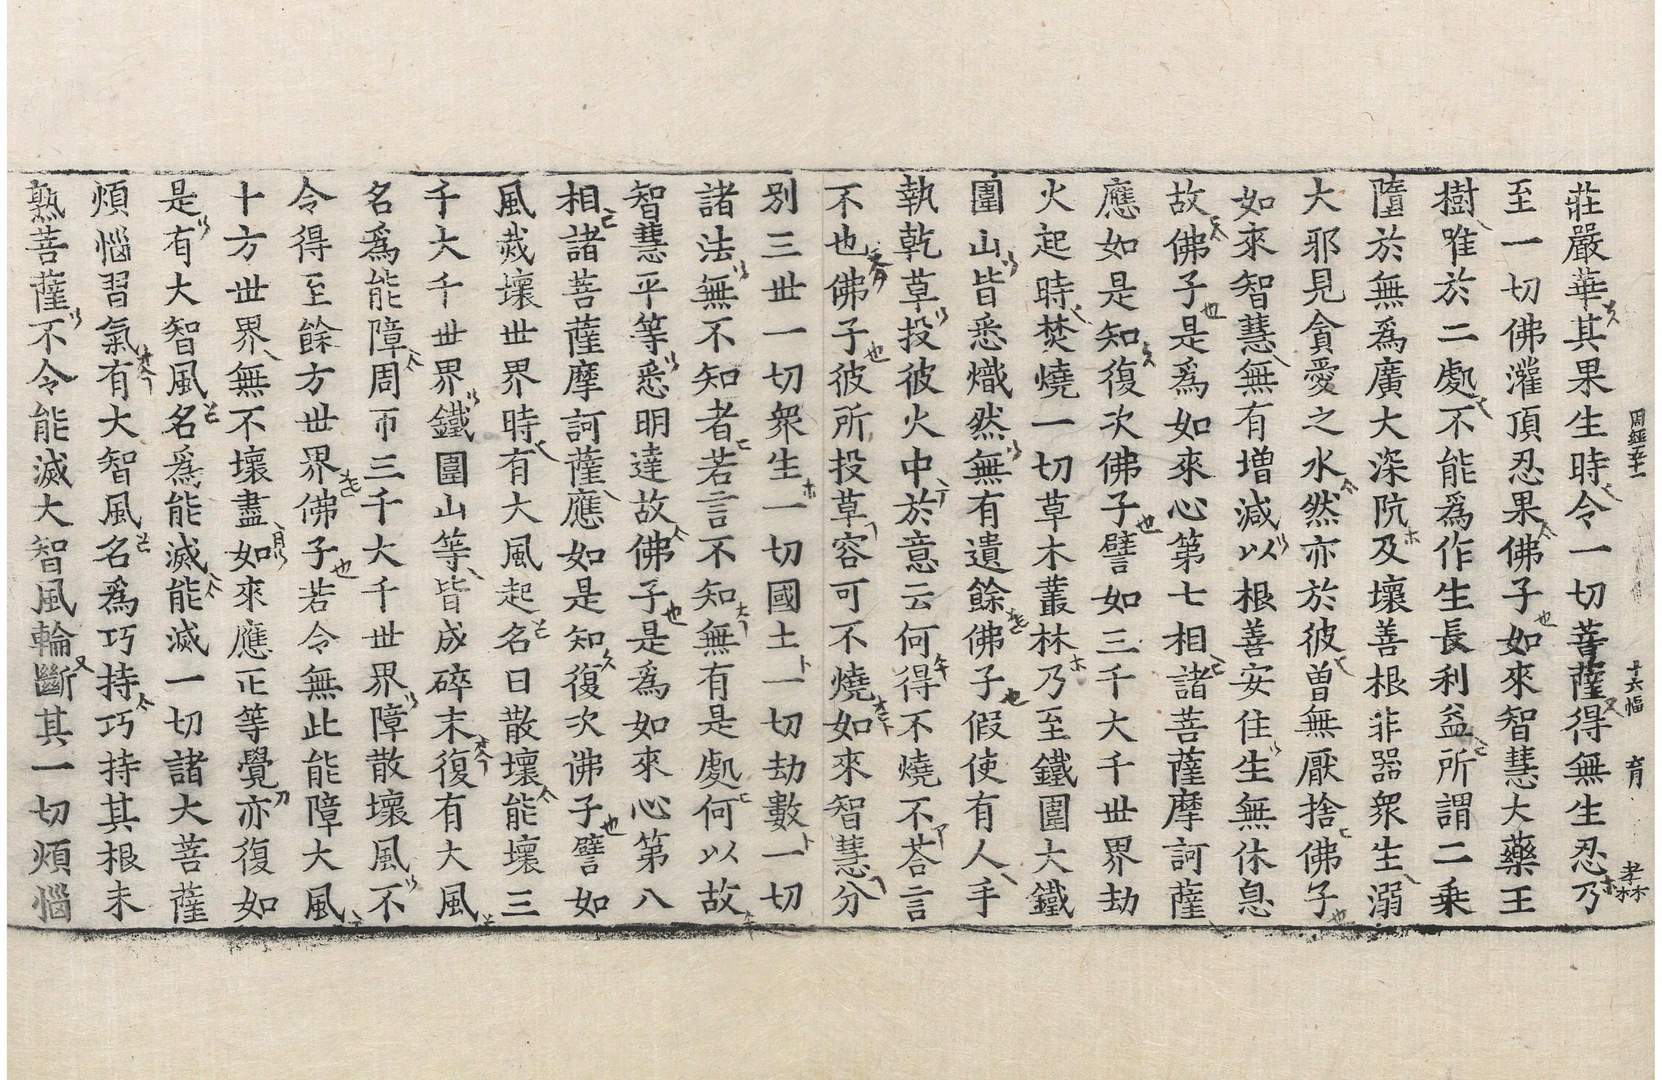 周經五十一 十六幅 育
莊嚴華其果生時令一切菩薩得無生忍乃
至一切佛灌頂忍果佛子如來智慧大藥王
樹唯於二處不能爲作生長利益所謂二乗
墮於無爲廣大深阬及壞善根非器衆生溺
大邪見貪愛之水然亦於彼曽無厭捨佛子
如來智慧無有增減以根善安住生無休息
故佛子是爲如來心第七相諸菩薩摩訶薩
應如是知復次佛子譬如三千大千世界劫
火起時焚燒一切草木叢林乃至鐵圍大鐵
圍山皆悉熾然無有遺餘佛子假使有人手
執乾草投彼火中於意云何得不燒不荅言
不也佛子彼所投草容可不燒如來智慧分
別三世一切衆生一切國土一切劫數一切
諸法無不知者若言不知無有是處何以故
智慧平等悉明達故佛子是爲如來心第八
相諸菩薩摩訶薩應如是知復次佛子譬如
風烖壞世界時有大風起名曰散壞能壞三
千大千世界鐵圍山等皆成碎末復有大風
名爲能障周帀三千大千世界障散壞風不
令得至餘方世界佛子若令無此能障大風
十方世界無不壞盡如來應正等覺亦復如
是有大智風名爲能滅能滅一切諸大菩薩
煩惱習氣有大智風名爲巧持巧持其根未
熟菩薩不令能滅大智風輪斷其一切煩惱